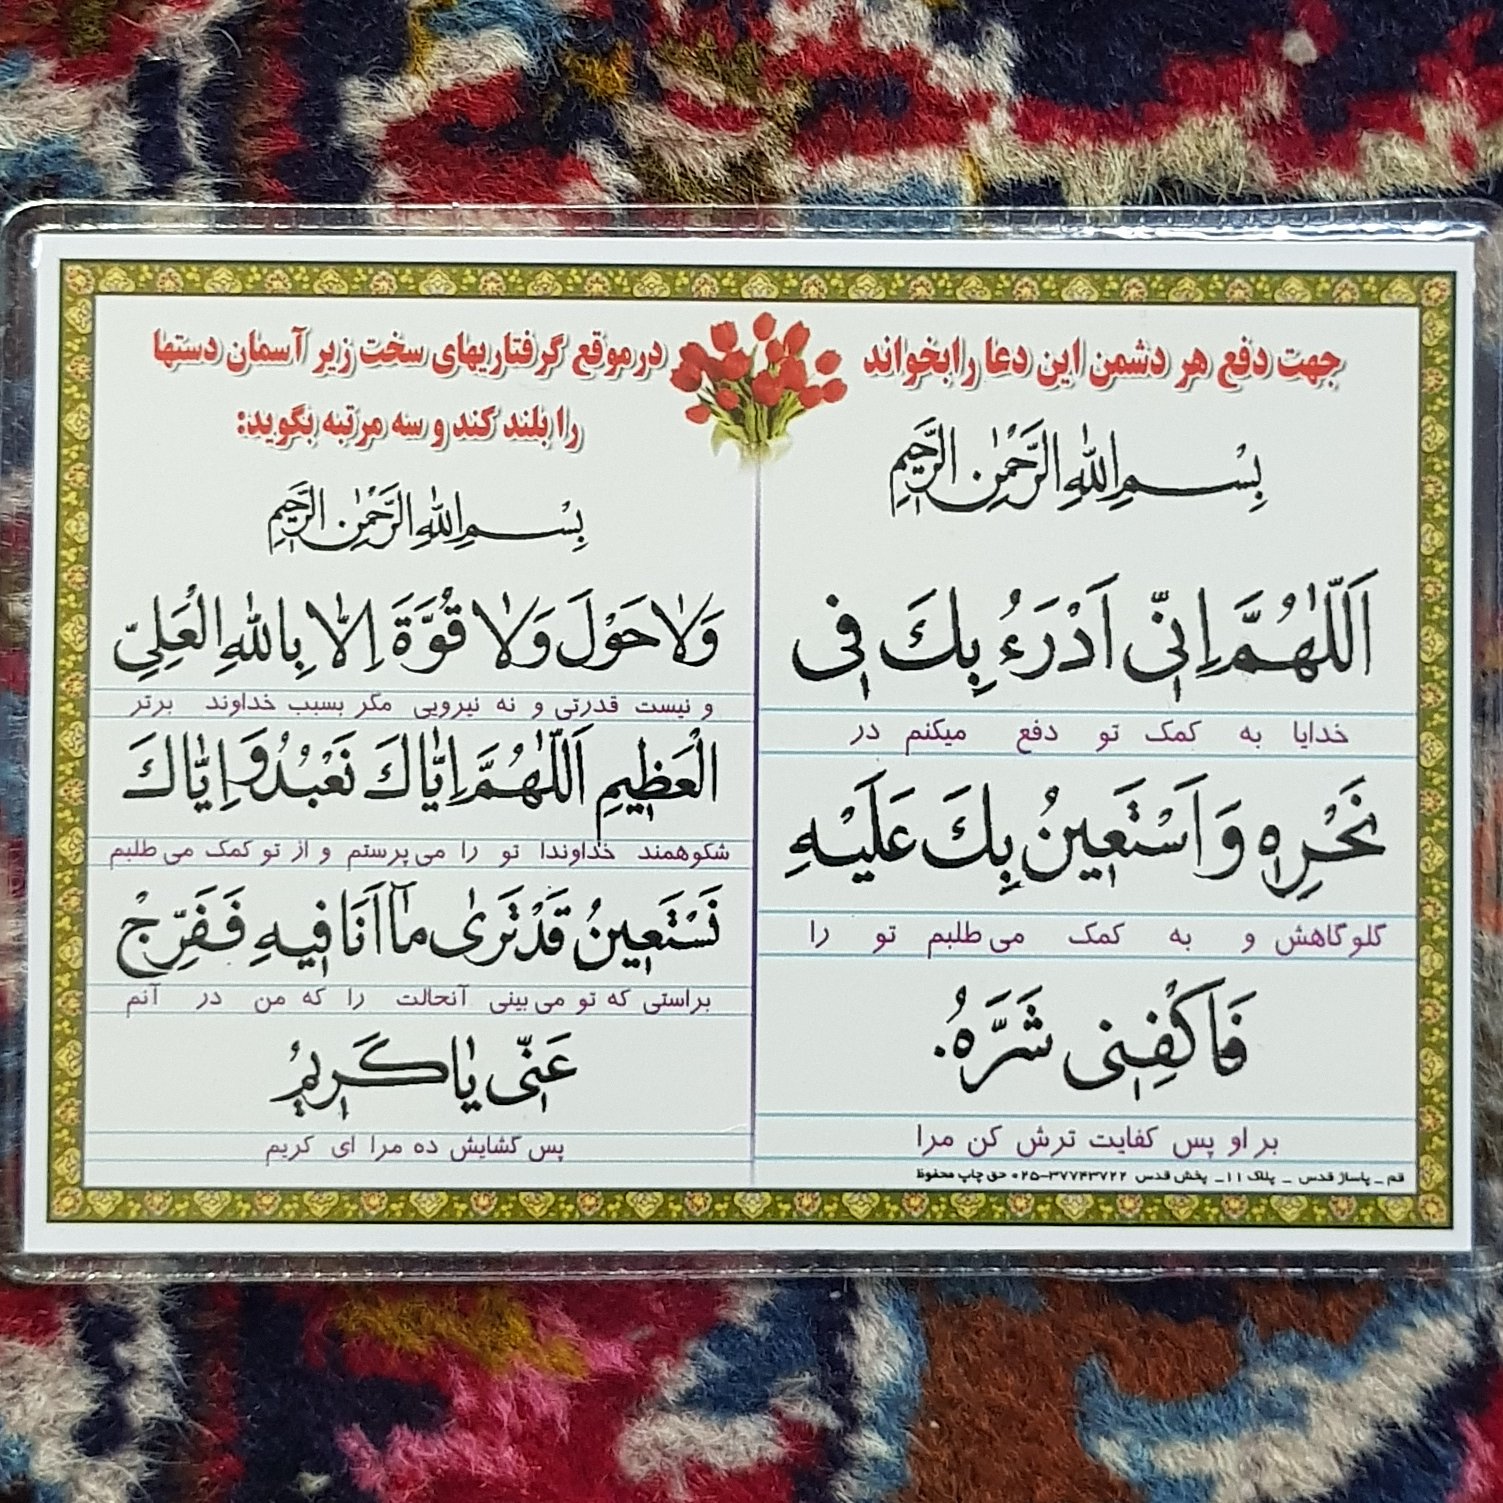 جهت دفع هر دشمن این دعا رابخواند
بِسْمِ اللهِ الرَّحْمٰنِ الرَّحِيمِ
اَللّٰهُمَّ اِنّى اَدْرَءُ بِكَ فى
خدایا به کمک تو دفع میکنم در
نَحْرِهِ وَ اَسْتَعينُ بِكَ عَلَيْهِ
گلوگاهش و به کمک می‌طلبم تو را
فَاكْفِنى شَرَّهُ.
بر او پس کفایت ترش کن مرا
قم _ پاساژ قدس _ پلاک ۱۱_ پخش قدس ۳۷۷۴۳۷۲۲-۰۲۵ حق چاپ محفوظ
درموقع گرفتاریهای سخت زیر آسمان دستها
را بلند کند و سه مرتبه بگوید:
بِسْمِ اللهِ الرَّحْمٰنِ الرَّحِيمِ
وَلٰا حَوْلَ وَلٰا قُوَّةَ اِلّٰا بِاللهِ الْعَلِىِّ
و نیست قدرتی و نه نیرویی مگر بسبب خداوند برتر
الْعَظيمِ اَللّٰهُمَّ اِيّٰاكَ نَعْبُدُ وَ اِيّٰاكَ
شکوهمند خداوندا تو را می‌پرستم و از تو کمک می‌طلبم
نَسْتَعينُ قَدْ تَرىٰ مٰا اَنَا فيهِ فَفَرِّجْ
براستی که تو می‌بینی آنحالت را که من در آنم
عَنّى يٰا كَريمُ
پس گشایش ده مرا ای کریم